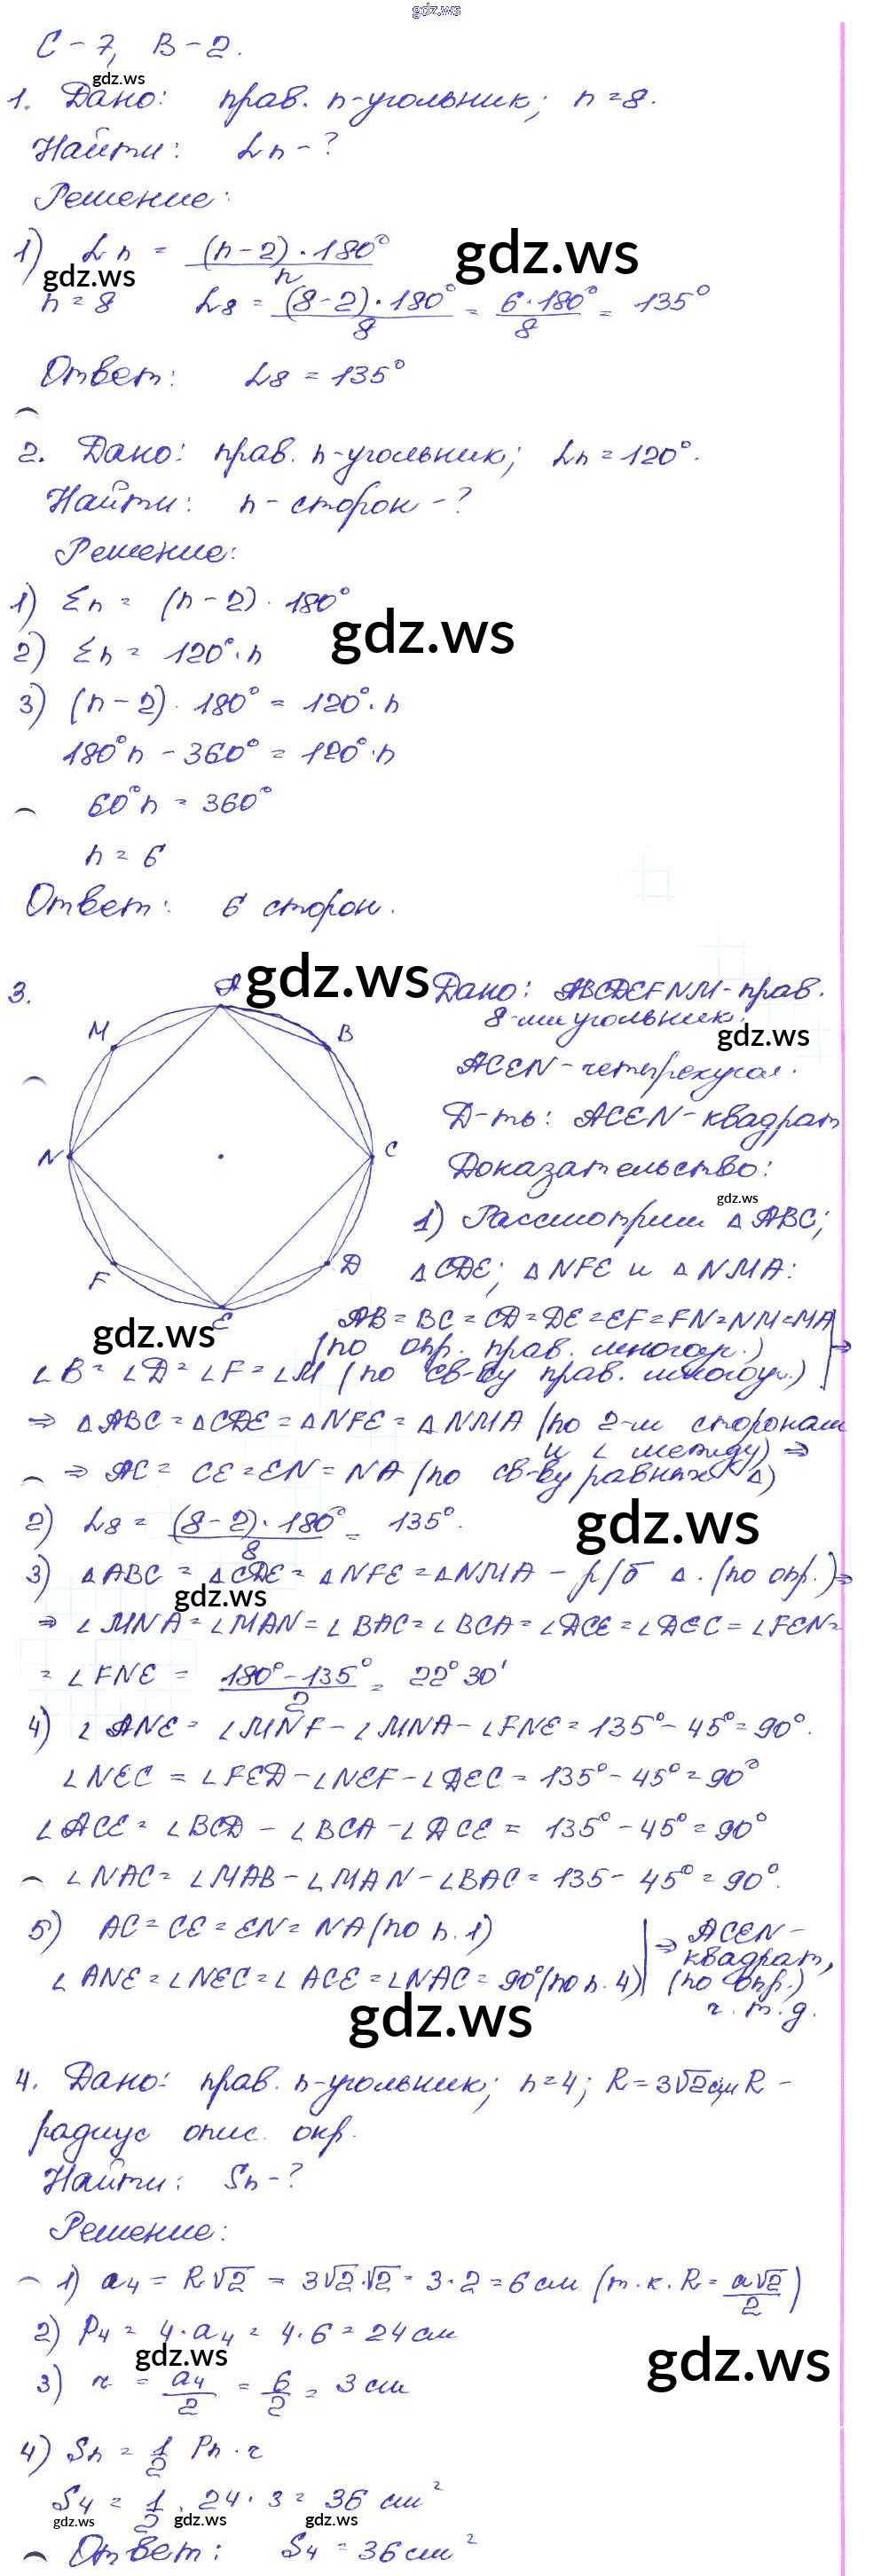 gdz.ws
С-7, В-2.
gdz.ws
1. Дано: прав. n-угольник; n=8.
Найти: αn-?
Решение:
1) αn = (n-2)·180°/n
gdz.ws
gdz.ws
n=8 α8 = (8-2)·180°/8 = 6·180°/8 = 135°
Ответ: α8=135°
2. Дано: прав. n-угольник; αn=120°.
Найти: n-сторон-?
Решение:
1) Σn = (n-2)·180°
gdz.ws
2) Σn = 120°·n
3) (n-2)·180° = 120°·n
180°n - 360° = 120°·n
60°n = 360°
n=6
Ответ: 6 сторон.
gdz.ws
3. A B C D E F N M
Дано: ABCDEFNM-прав.
8-миугольник.
gdz.ws
ACEN-четырехугол.
Д-ть: ACEN-квадрат
Доказательство:
gdz.ws
1) Рассмотрим △ABC;
△CDE; △NFE и △NMA:
gdz.ws
AB=BC=CD=DE=EF=FN=NM=MA
(по опр. прав. многоуг.)
∠B=∠D=∠F=∠M (по св-ву прав. многоуг.) ⇒
⇒ △ABC=△CDE=△NFE=△NMA (по 2-м сторонам
и ∠ между) ⇒
⇒ AC=CE=EN=NA (по св-ву равных △)
2) α8 = (8-2)·180°/8 = 135°.
gdz.ws
3) △ABC=△CDE=△NFE=△NMA - р/б △. (по опр.) ⇒
gdz.ws
⇒ ∠MNA=∠MAN=∠BAC=∠BCA=∠DCE=∠DEC=∠FEN=
=∠FNE = 180°-135°/2 = 22°30'
4) ∠ANE=∠MNF-∠MNA-∠FNE=135°-45°=90°.
∠NEC=∠FED-∠NEF-∠DEC=135°-45°=90°
∠ACE=∠BCD-∠BCA-∠DCE=135°-45°=90°
∠NAC=∠MAB-∠MAN-∠BAC=135-45°=90°.
5) AC=CE=EN=NA (по п. 1)
∠ANE=∠NEC=∠ACE=∠NAC=90° (по п. 4)
⇒ ACEN-
квадрат,
(по опр.)
ч.т.д.
gdz.ws
4. Дано: прав. n-угольник; n=4; R=3√2см; R-
радиус опис. окр.
Найти: Sn-?
Решение:
1) a4 = R√2 = 3√2·√2 = 3·2=6 см (т.к. R = a√2/2)
2) P4 = 4·a4 = 4·6=24 см
gdz.ws
gdz.ws
3) r = a4/2 = 6/2 = 3 см
4) Sn = 1/2 Pn·r
S4 = 1/2·24·3 = 36 см²
gdz.ws gdz.ws gdz.ws
Ответ: S4=36 см²